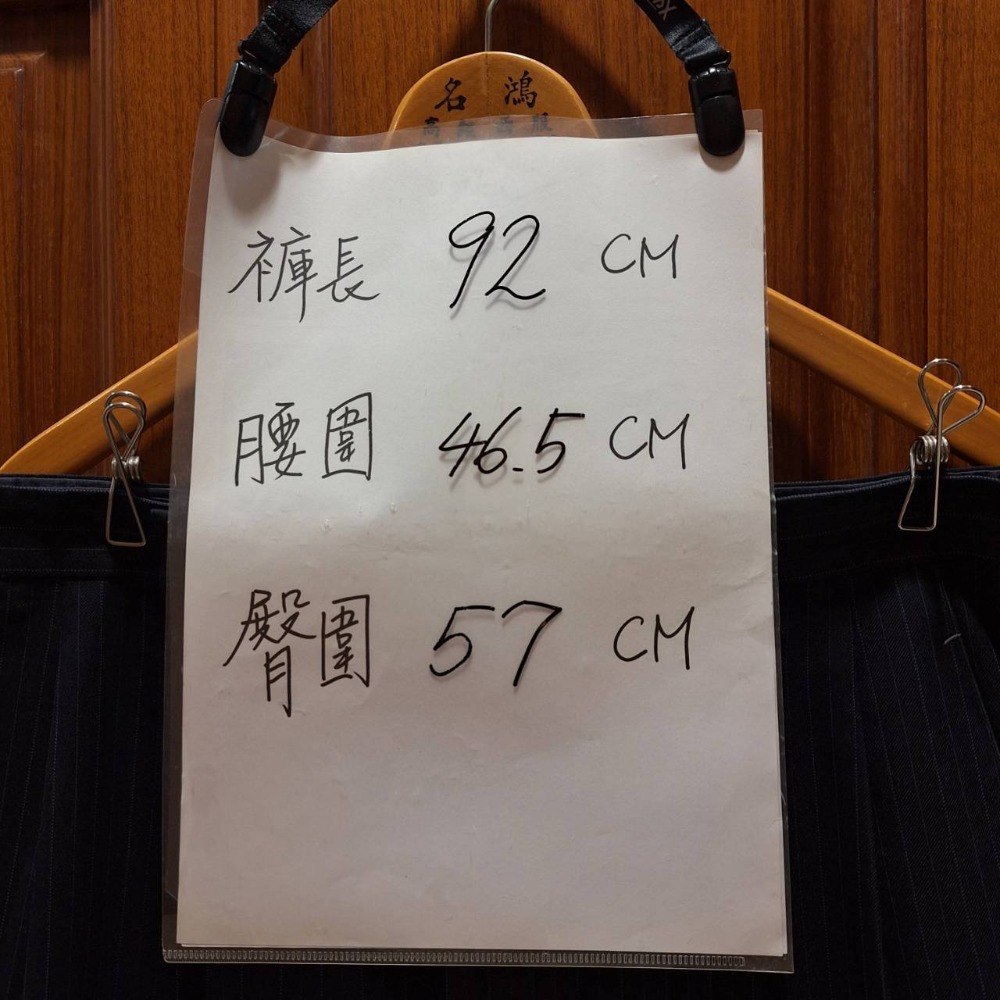 名鴻
褲長 92 CM
腰圍 46.5 CM
臀圍 57 CM